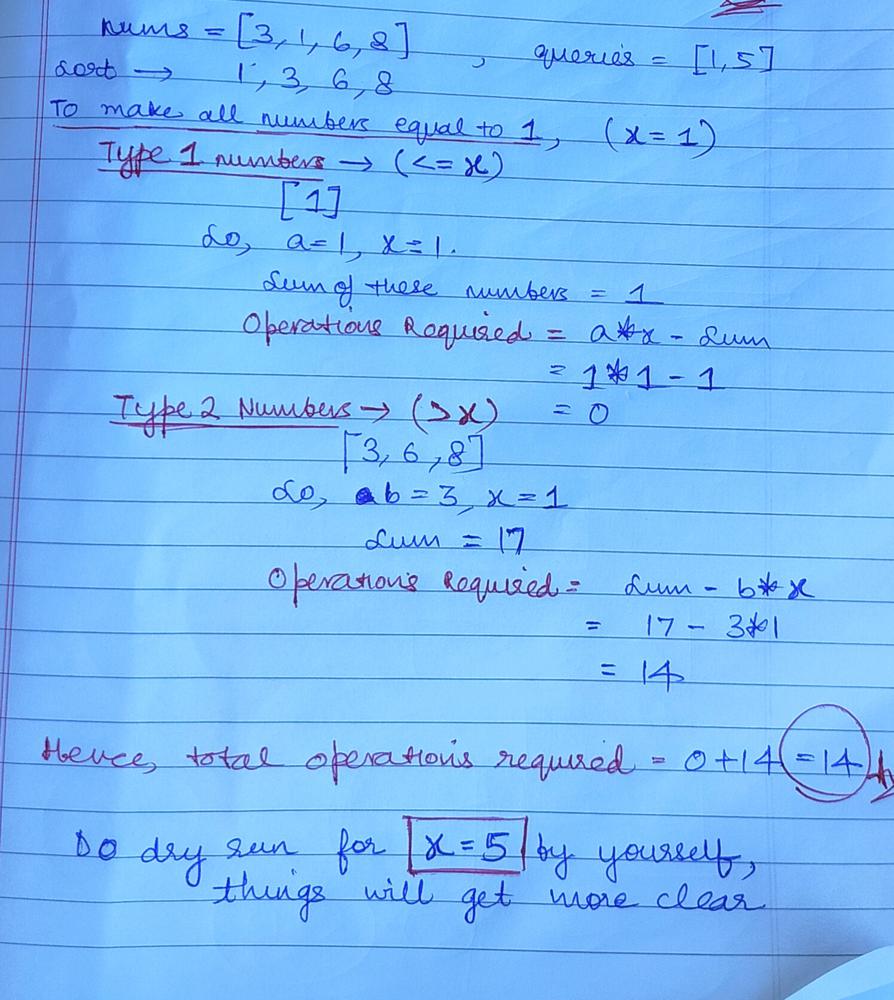 nums = [3, 1, 6, 8] , queries = [1, 5]
Sort → 1, 3, 6, 8
To make all numbers equal to 1, (x = 1)
Type 1 numbers → (<= x)
[1]
So, a=1, x=1.
Sum of these numbers = 1
Operations Required = a*x - Sum
= 1*1 - 1
= 0
Type 2 Numbers → (>x)
[3, 6, 8]
So, b = 3, x = 1
Sum = 17
Operations Required = Sum - b*x
= 17 - 3*1
= 14
Hence, total operations required = 0+14 = 14
Do dry run for x = 5 by yourself,
things will get more clear